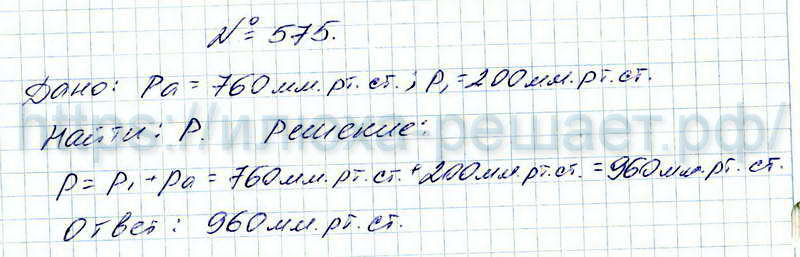 № 575.
Дано: Pa = 760 мм. рт. ст.; P₁ = 200 мм. рт. ст.
Найти: P. Решение:
P = P₁ + Pa = 760 мм. рт. ст. + 200 мм рт. ст. = 960 мм. рт. ст.
Ответ: 960 мм. рт. ст.